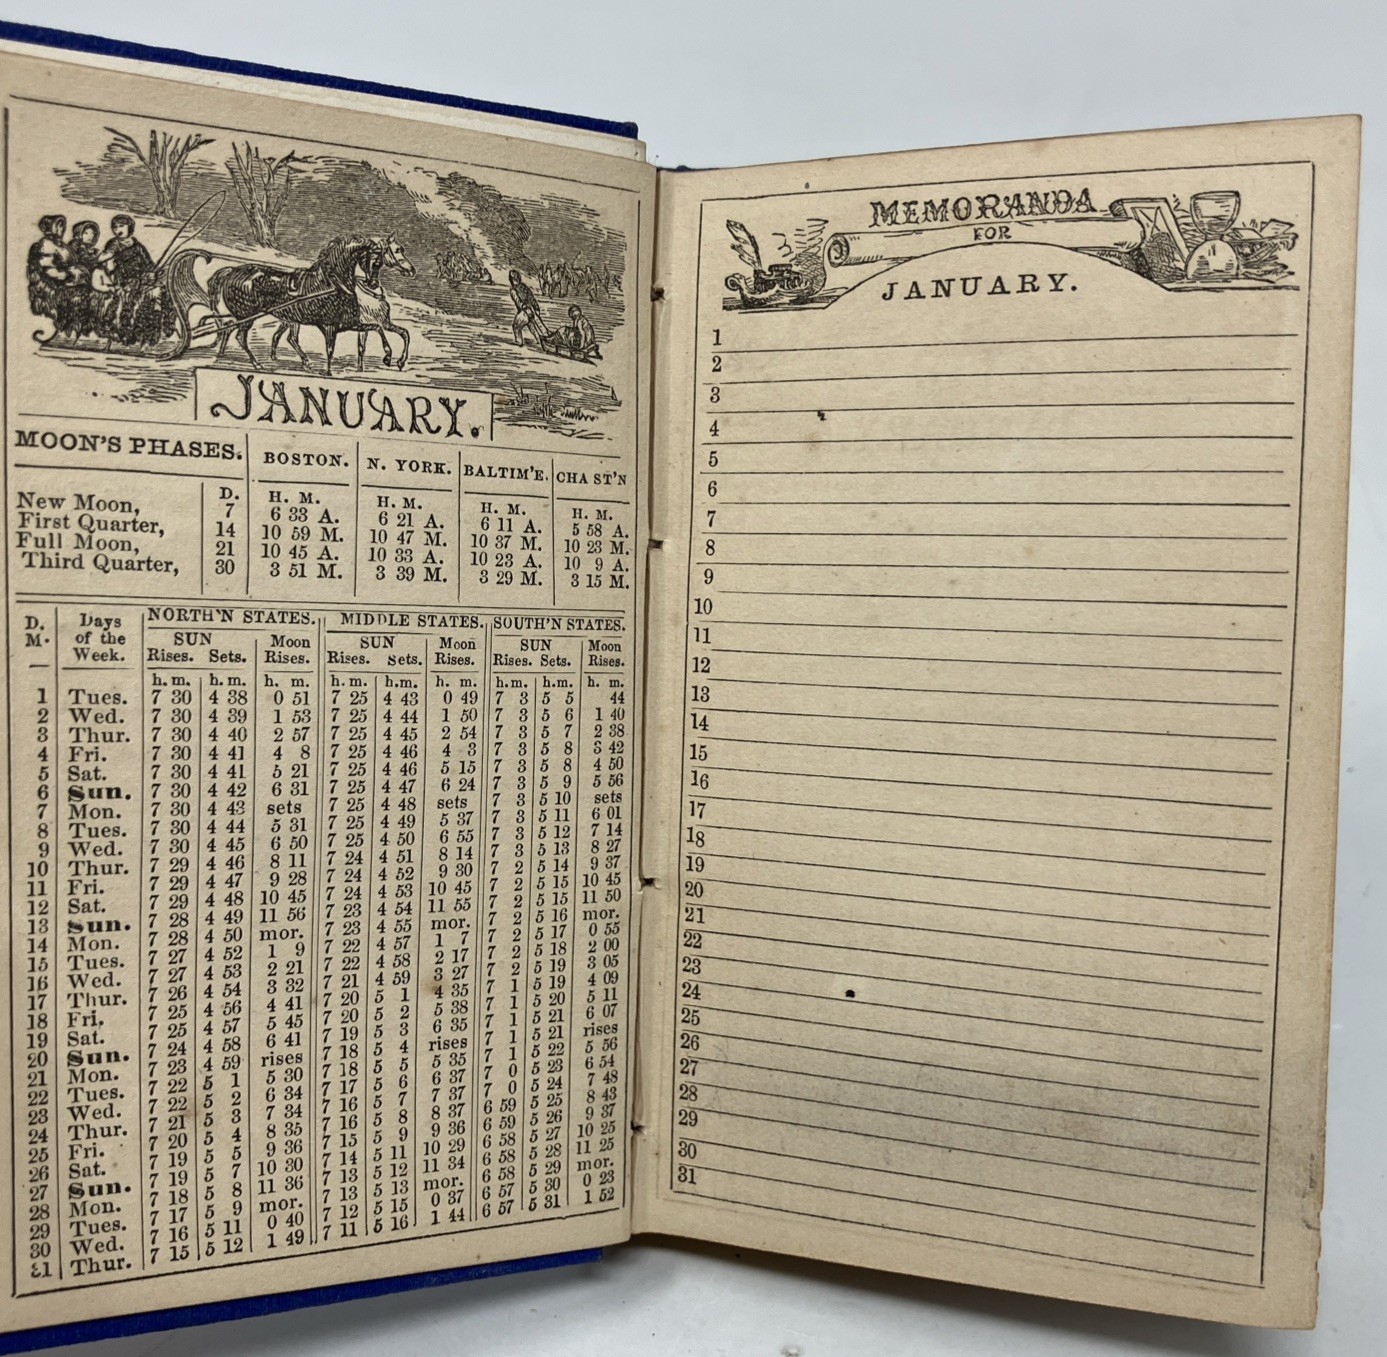 JANUARY.
MOON'S PHASES. BOSTON. N. YORK. BALTIM'E. CHA ST'N
D. H. M. H. M. H. M. H. M.
New Moon, 7 6 33 A. 6 21 A. 6 11 A. 5 58 A.
First Quarter, 14 10 59 M. 10 47 M. 10 37 M. 10 23 M.
Full Moon, 21 10 45 A. 10 33 A. 10 23 A. 10 9 A.
Third Quarter, 30 3 51 M. 3 39 M. 3 29 M. 3 15 M.
D. M. Days of the Week. NORTH'N STATES. MIDDLE STATES. SOUTH'N STATES.
SUN Moon SUN Moon SUN Moon
Rises. Sets. Rises. Rises. Sets. Rises. Rises. Sets. Rises.
h. m. h. m. h. m. h. m. h. m. h. m. h. m. h. m. h. m.
1 Tues. 7 30 4 38 0 51 7 25 4 43 0 49 7 3 5 5 44
2 Wed. 7 30 4 39 1 53 7 25 4 44 1 50 7 3 5 6 1 40
3 Thur. 7 30 4 40 2 57 7 25 4 45 2 54 7 3 5 7 2 38
4 Fri. 7 30 4 41 4 8 7 25 4 46 4 3 7 3 5 8 3 42
5 Sat. 7 30 4 41 5 21 7 25 4 46 5 15 7 3 5 8 4 50
6 Sun. 7 30 4 42 6 31 7 25 4 47 6 24 7 3 5 9 5 56
7 Mon. 7 30 4 43 sets 7 25 4 48 sets 7 3 5 10 sets
8 Tues. 7 30 4 44 5 31 7 25 4 49 5 37 7 3 5 11 6 01
9 Wed. 7 30 4 45 6 50 7 25 4 50 6 55 7 3 5 12 7 14
10 Thur. 7 29 4 46 8 11 7 24 4 51 8 14 7 3 5 13 8 27
11 Fri. 7 29 4 47 9 28 7 24 4 52 9 30 7 2 5 14 9 37
12 Sat. 7 29 4 48 10 45 7 24 4 53 10 45 7 2 5 15 10 45
13 Sun. 7 28 4 49 11 56 7 23 4 54 11 55 7 2 5 15 11 50
14 Mon. 7 28 4 50 mor. 7 23 4 55 mor. 7 2 5 16 mor.
15 Tues. 7 27 4 52 1 9 7 22 4 57 1 7 7 2 5 17 0 55
16 Wed. 7 27 4 53 2 21 7 22 4 58 2 17 7 2 5 18 2 00
17 Thur. 7 26 4 54 3 32 7 21 4 59 3 27 7 2 5 19 3 05
18 Fri. 7 25 4 56 4 41 7 20 5 1 4 35 7 1 5 19 4 09
19 Sat. 7 25 4 57 5 45 7 20 5 2 5 38 7 1 5 20 5 11
20 Sun. 7 24 4 58 6 41 7 19 5 3 6 35 7 1 5 21 6 07
21 Mon. 7 23 4 59 rises 7 18 5 4 rises 7 1 5 21 rises
22 Tues. 7 22 5 1 5 30 7 18 5 5 5 35 7 1 5 22 5 56
23 Wed. 7 22 5 2 6 34 7 17 5 6 6 37 7 0 5 23 6 54
24 Thur. 7 21 5 3 7 34 7 16 5 7 7 37 7 0 5 24 7 48
25 Fri. 7 20 5 4 8 35 7 16 5 8 8 37 6 59 5 25 8 43
26 Sat. 7 19 5 5 9 36 7 15 5 9 9 36 6 59 5 26 9 37
27 Sun. 7 19 5 7 10 30 7 14 5 11 10 29 6 58 5 27 10 25
28 Mon. 7 18 5 8 11 36 7 13 5 12 11 34 6 58 5 28 11 25
29 Tues. 7 17 5 9 mor. 7 13 5 13 mor. 6 58 5 29 mor.
30 Wed. 7 16 5 11 0 40 7 12 5 15 0 37 6 57 5 30 0 23
31 Thur. 7 15 5 12 1 49 7 11 5 16 1 44 6 57 5 31 1 52
MEMORANDA
FOR
JANUARY.
1
2
3
4
5
6
7
8
9
10
11
12
13
14
15
16
17
18
19
20
21
22
23
24
25
26
27
28
29
30
31